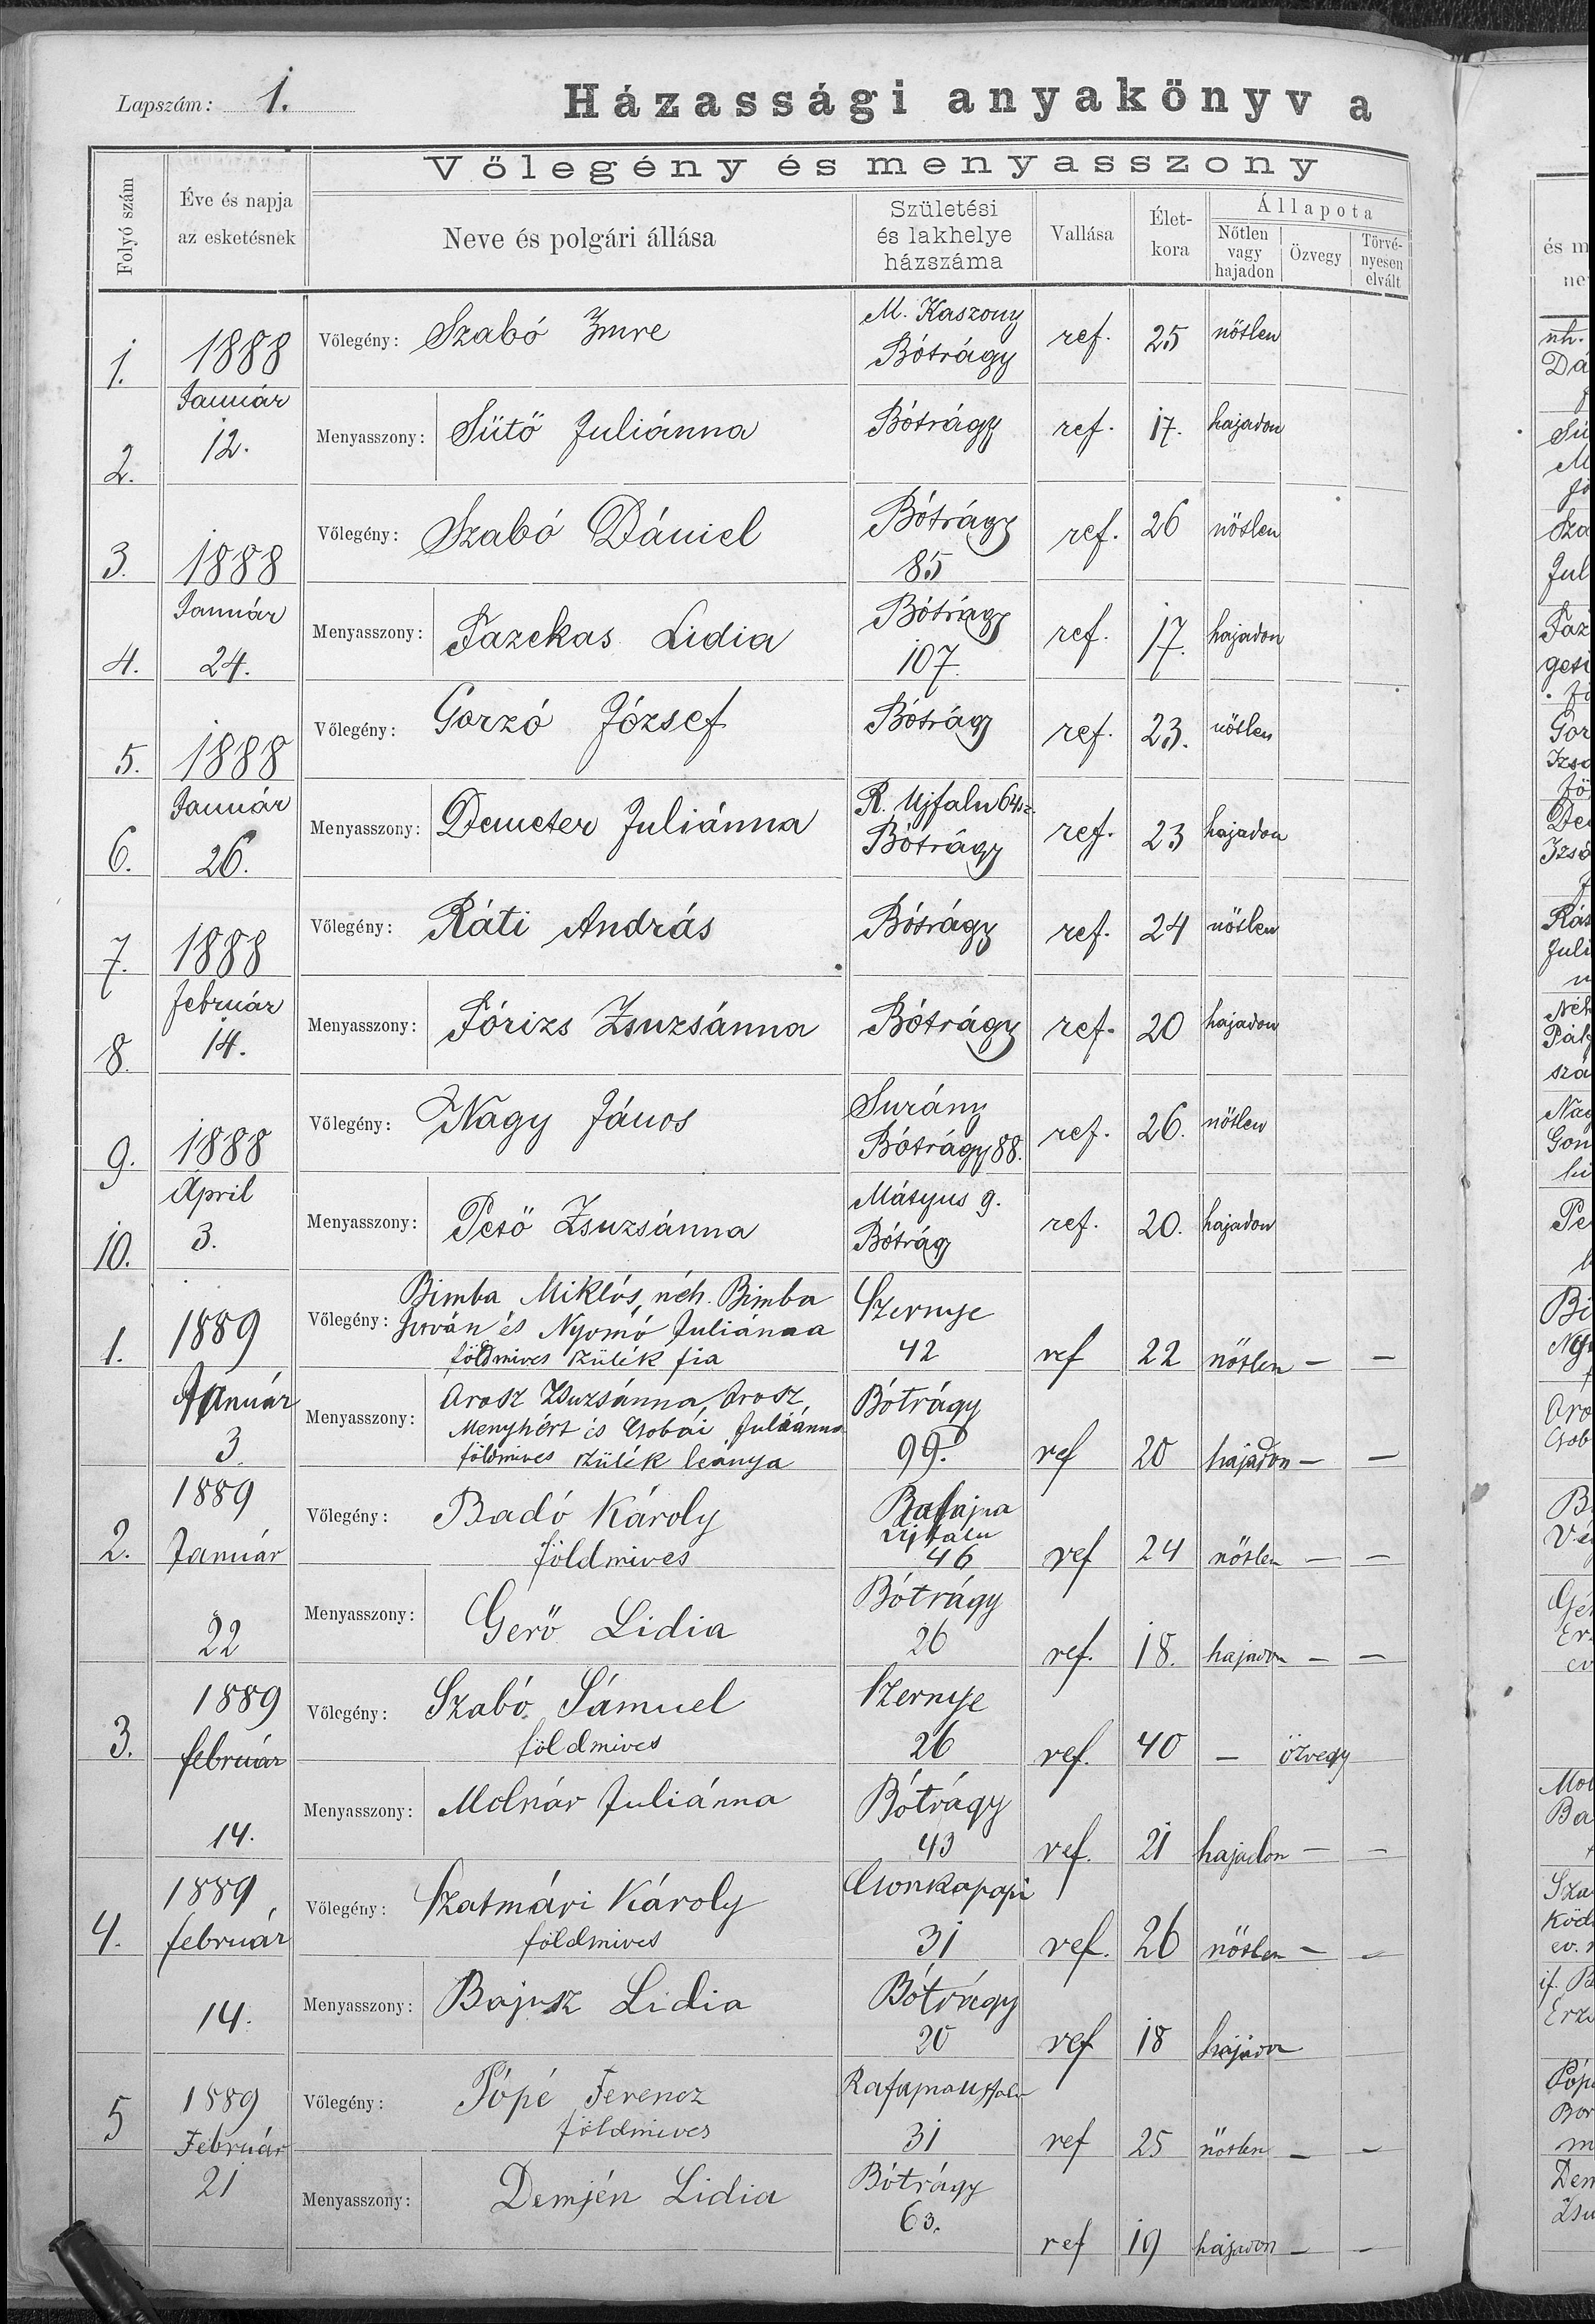 Lapszám: 1.
Házassági anyakönyv a
Vőlegény és menyasszony
Folyó szám
Éve és napja az esketésnek
Neve és polgári állása
Születési és lakhelye házszáma
Vallása
Élet-kora
Állapota
Nőtlen vagy hajadon
Özvegy
Törvé-nyesen elvált
1. 1888 Vőlegény: Szabó Imre M. Kaszony Bótrágy ref. 25 nőtlen
2. Január 12. Menyasszony: Sütő Juliánna Bótrágy ref. 17. hajadon
3. 1888 Vőlegény: Szabó Dániel Bótrágy 85 ref. 26 nőtlen
4. Január 24. Menyasszony: Fazekas Lidia Bótrágy 107. ref. 17. hajadon
5. 1888 Vőlegény: Gorzó József Bótrágy ref. 23. nőtlen
6. Január 26. Menyasszony: Demeter Juliánna R. Ujfalu Bótrágy ref. 23 hajadon
7. 1888 Vőlegény: Ráti András Bótrágy ref. 24 nőtlen
8. február 14. Menyasszony: Fórizs Zsuzsánna Bótrágy ref. 20 hajadon
9. 1888 Vőlegény: Nagy János Surány Bótrágy 88. ref. 26. nőtlen
10. April 3. Menyasszony: Pető Zsuzsánna Mátyus g. Bótrágy ref. 20. hajadon
1. 1889 Vőlegény: Bimba Miklós, néh. Bimba
István és Nyomó Juliánna
földmives szülék fia Szernye 42 ref 22 nőtlen — —
Január 3. Menyasszony: Orosz Zsuzsánna, Orosz
Menyhért és Juliánna
földmives szülék leánya Bótrágy 99. ref 20 hajadon — —
2. 1889 Január Vőlegény: Badó Károly
földmives Rafajna Ujfalu 46 ref 24 nőtlen — —
22 Menyasszony: Gerő Lidia Bótrágy 26 ref. 18. hajadon — —
3. 1889 február Vőlegény: Szabó Sámuel
földmives Szernye 26 ref. 40 — özvegy
14. Menyasszony: Molnár Juliánna Bótrágy 43 ref. 21 hajadon — —
4. 1889 február Vőlegény: Szatmári Károly
földmives Csonkapapi 31 ref. 26 nőtlen — —
14. Menyasszony: Bajusz Lidia Bótrágy 20 ref 18 hajadon
5 1889 Február Vőlegény: Pópé Ferencz
földmives Rafajnaujfalu 31 ref 25 nőtlen — —
21 Menyasszony: Demjén Lidia Bótrágy 63. ref 19 hajadon — —